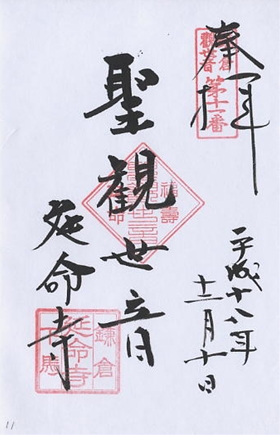 奉拝
鎌倉
觀世音
第十一番
平成十八年
十二月十日
聖観世音
福壽
延命寺
鎌倉
延命寺
11